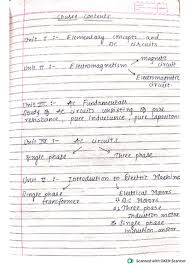 Course Contents
Unit I :- Elementary concepts and
DC circuits
Unit II :- Electromagnetism
magnetic circuit
Electromagnetic circuit
Unit III :- Ac Fundamentals
Study of Ac circuits consisting of pure
resistance, pure inductance, pure capacitance
Unit IV :- Ac Circuits
Single phase Three phase
Unit V :- Introduction to Electric Machine
Single phase transformer
Electrical Motors
DC Motors
Three phase
Induction motor
Single phase
Induction motor
Scanned with OKEN Scanner